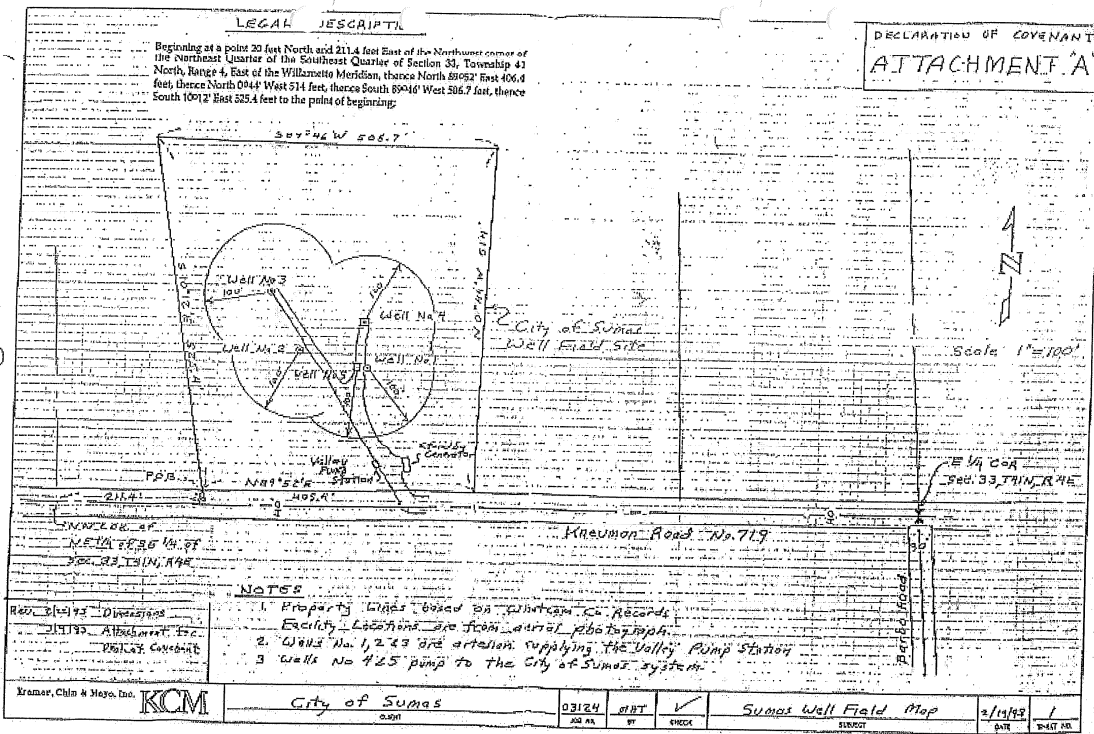 LEGAL DESCRIPTI
DECLARATION OF COVENANT
ATTACHMENT "A"
Beginning at a point 20 feet North and 211.4 feet East of the Northwest corner of
the Northeast Quarter of the Southeast Quarter of Section 33, Township 41
North, Range 4, East of the Willamette Meridian, thence North 89°52' East 406.4
feet, thence North 0°44' West 514 feet, thence South 89°46' West 506.7 feet, thence
South 10°12' East 525.4 feet to the point of beginning;
S 89°46' W 506.7'
S 10°12' E 525.4'
N 0°44' W 514'
Well No 3
100'
100'
Well No 4
Well No 2
Well No 1
Well No 5
100'
100'
100'
City of Sumas
Well Field Site
N
Scale 1"=100'
Standby
Generator
Valley
Pump
Station
P.O.B.
N 89°52' E
211.4'
E 1/4 COR
Sec. 33, T41N, R4E
20
40
30'
Kneuman Road No. 719
N.W. COR. of
N.E 1/4 of SE 1/4 of
Sec. 33 T41N, R4E
Barbo Road
NOTES
1. Property Lines based on Whatcom Co. Records
Facility Locations are from aerial photograph.
2. Wells No. 1, 2 & 3 are artesian supplying the Valley Pump Station
3 Wells No 4 & 5 pump to the City of Sumas system
Rev. Dimensions
Attachment, Etc.
of Covenant
Kramer, Chin & Mayo, Inc. KCM
City of Sumas
CLIENT
03124
JOB NO.
BY
✓
CHECK
Sumas Well Field Map
SUBJECT
DATE
1
SHEET NO.